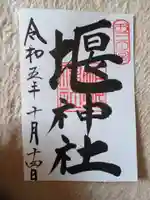 堰神社
令和五年十月十四日